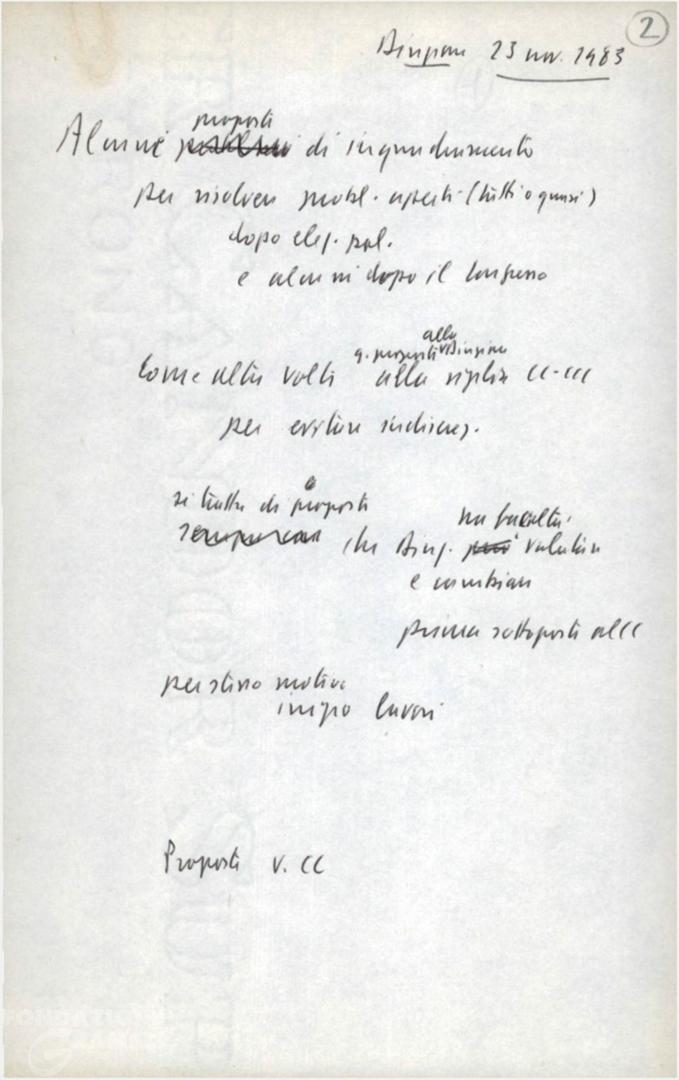 2
Direzione 23 nov. 1983
proposte
Alcune di inquadramento
per risolvere probl. aperti (tutti o quasi)
dopo elez. pol.
e alcuni dopo il Congresso
alla
q. proposte Direzione
Come altre volte alla vigilia CC-CCC
per evitare indiscrez.
si tratta di proposte
ha facoltà
che Direz. può valutare
e cambiare
prima sottoposte al CC
per stesso motivo
inizio lavori
Proposte v. CC
FONDAZIONE
GRAMSCI